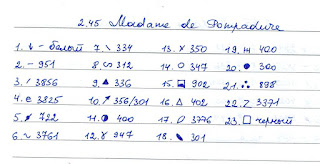 2.45 Madame de Pompadure
1. ↓ - белый 7. \ 334 13. x 350 19. 400
2. - 951 8. 312 14. o 347 20. ● 300
3. / 3856 9. ▲ 336 15. 902 21. ∴ 898
4. e 3825 10. ↗ 356/301 16. △ 402 22. Z 3371
5. 722 11. 400 17. 0 3776 23. □ черный
6. ~ 3761 12. 947 18. 301